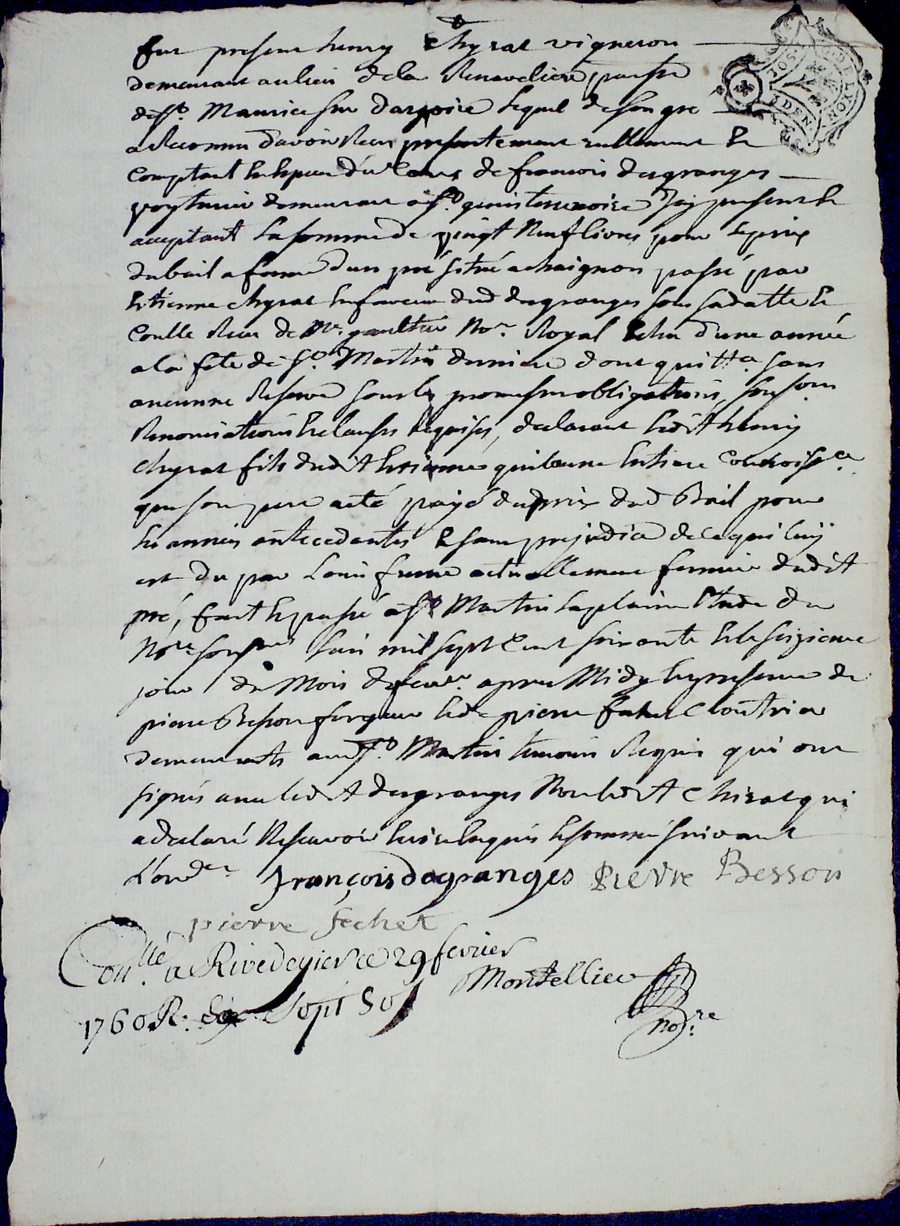 fut present henry Chyrat vigneron
demeurant au lieu de la Renaveliere parsse
de St. Maurice sur dargoire lequel de son gre
a Reconnu davoir Receu presentement reellement Et
comptant En Espece du Cours de francois desgranges
voyturier demeurant a St. genis terrenoire Icy present Et
aceptant La somme de vingt Neuf livres pour le prix
du bail a ferme dun pré situé a chaignon passé par
Etienne chyrat En faveur dud desgranges sous sa datte Et
Conllé Receu de Mr. gaultier Nore Royal Echu d'une année
a la fete de St. Martin derniere dont quitte. sans
aucunne Reserve sous les promesses obligations, soums.ons
Renonciations Et clauses Requises, declarant ledit henry
chyrat fils dudit Etienne quil a une Entiere Connoissce
que son pere a eté payé du prix dud Bail pour
les années antecedantes Et sans prejudice de ce qui luy
est du par Louis actuellement fermier dudit
pré, fait Et passé a St. Martin la plaine Etude du
Nore soussné Lan mil sept Cent soixante Et le seizieme
jour du Mois de fevr. apres Midy En presence de
pierre Besson forgeur Et de pierre fechet Cloutrier
demeurants aud St. Martin temoins Requis qui ont
signés avec ledit desgranges Non ledit Chirat qui
a declaré Ne scavoir Ecrire Enquis Et sommé suivant
L'ordce
françois dagranges pierre Besson
pierre fechet
Conllé. a Rivedegier ce 29 fevrier
Montellier
nore
1760 R. Sept Sols